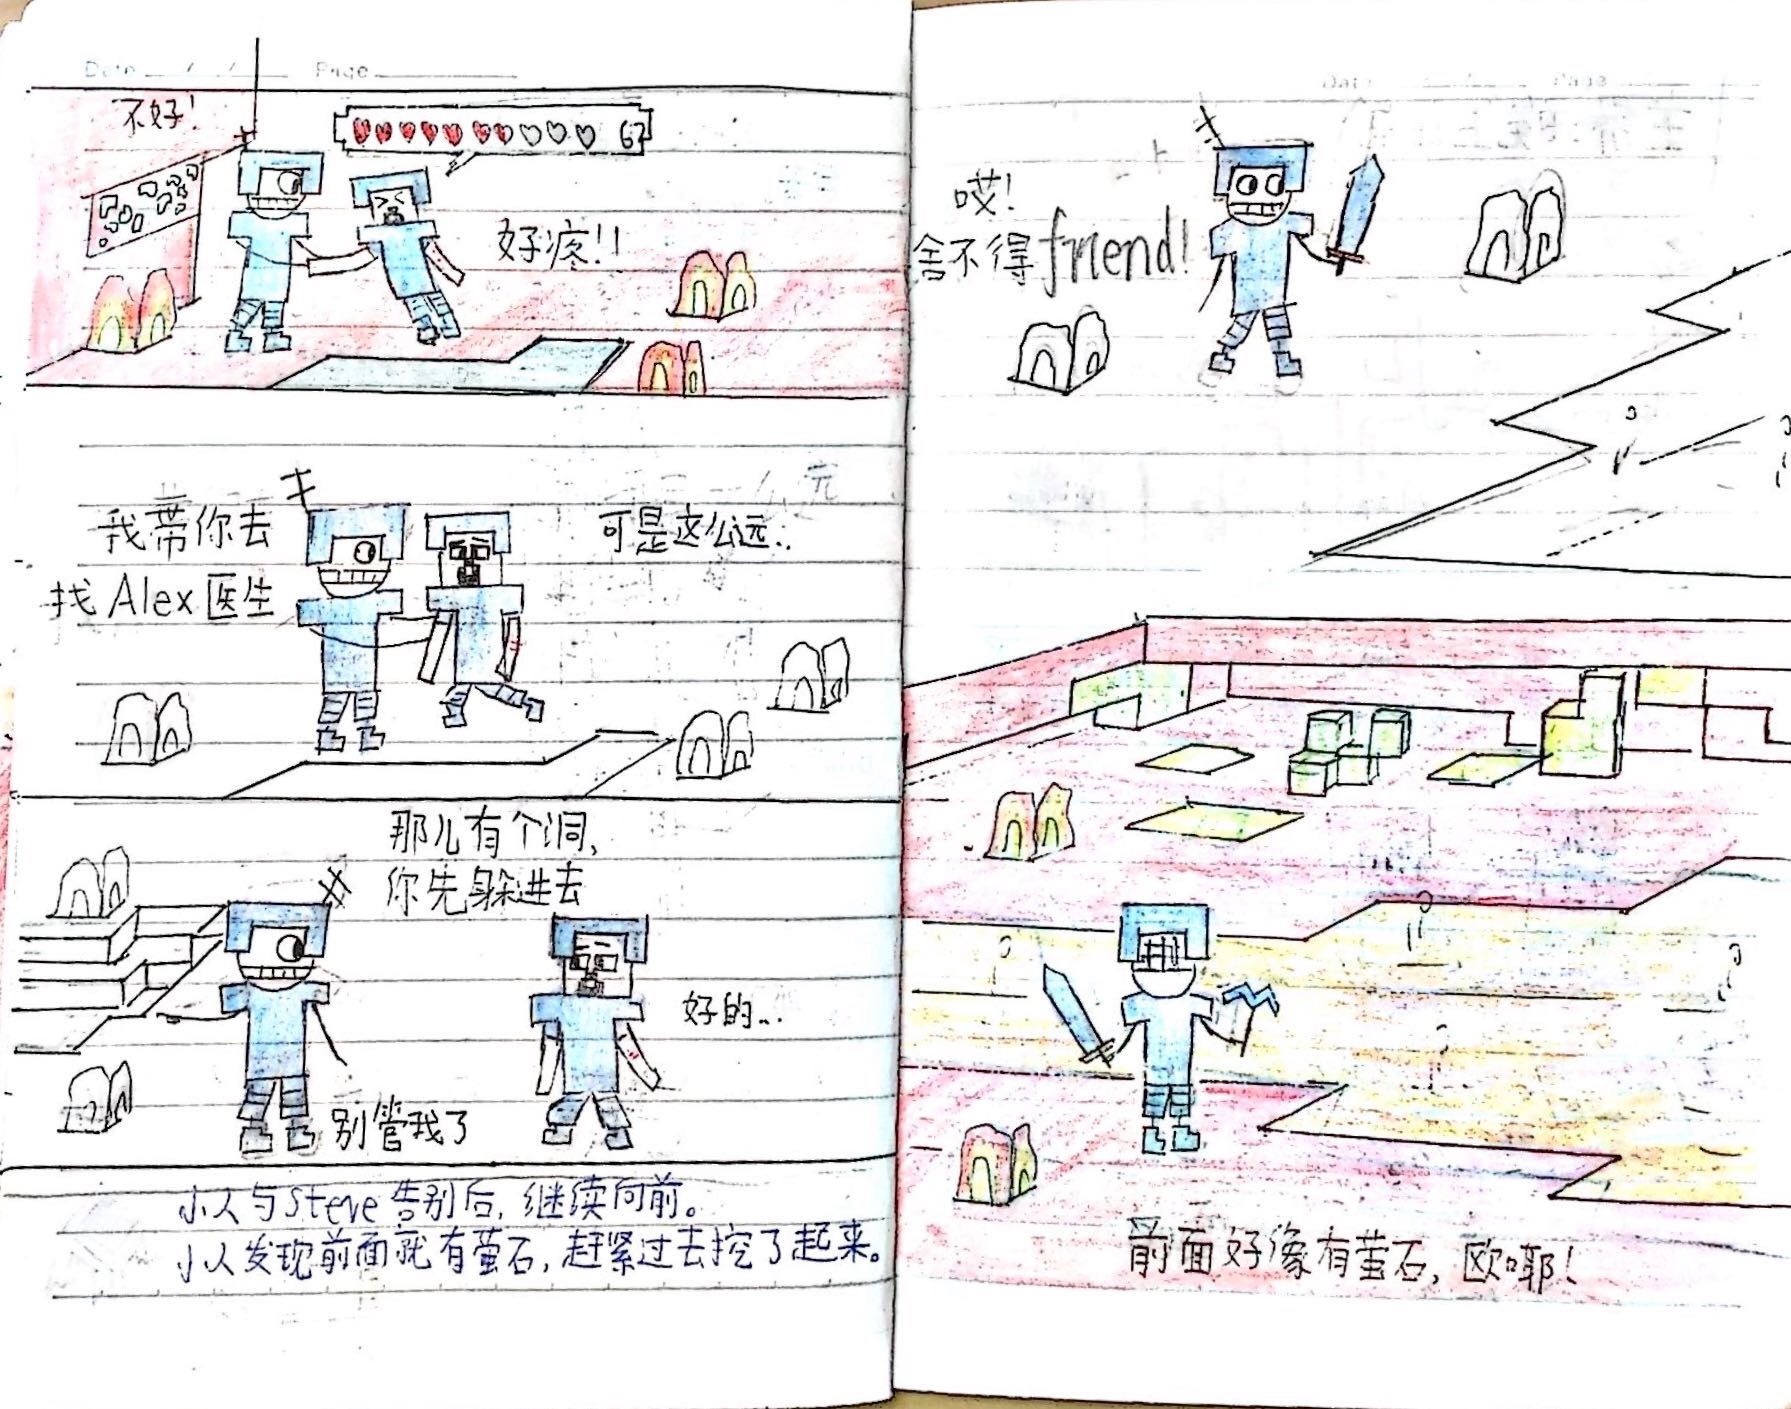 Date / / Page
不好!
67
好疼!!
我带你去
找Alex医生
可是这么远..
那儿有个洞,
你先躲进去
好的...
别管我了
小人与Steve告别后,继续向前。
小人发现前面就有萤石,赶紧过去挖了起来。
哎!
舍不得friend!
前面好像有萤石,欧耶!